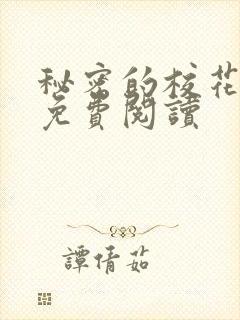 秘密的校花
免費閱讀
譚倩茹